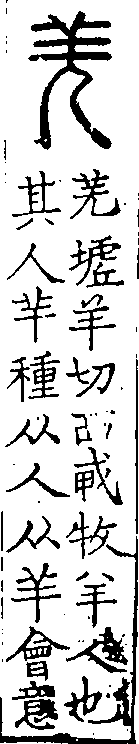 羌
羌墟羊切西戎牧羊人也
其人羊種从人从羊會意